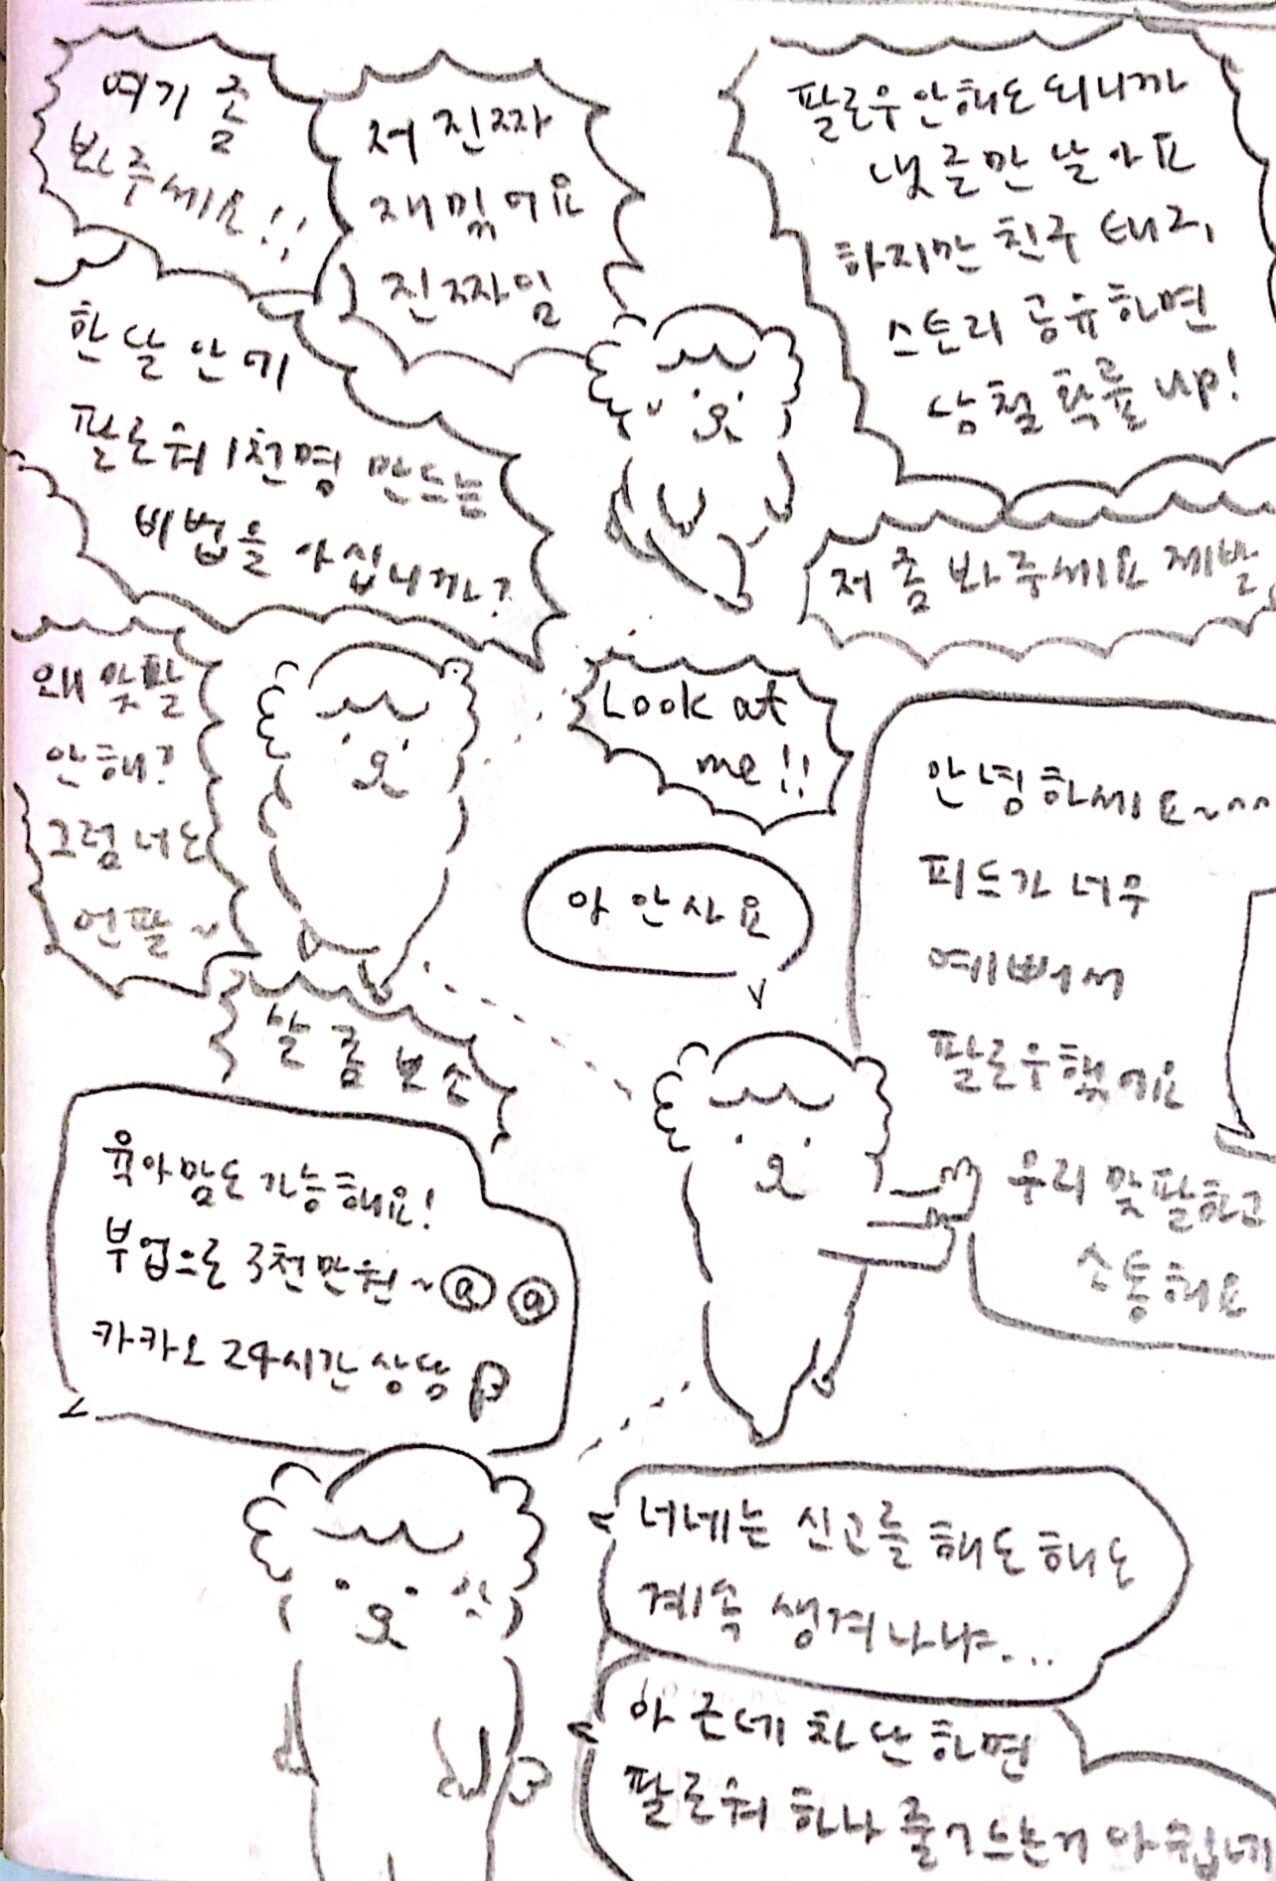 여기 좀
봐주세요!!
저 진짜
재밌어요
진짜임
팔로우안해도 되니까
댓글만 달아요
하지만 친구 태그,
스토리 공유하면
당첨 확률 up!
한달안에
팔로워 1천명 만드는
비법을 아십니까?
저 좀 봐주세요 제발
왜 맞팔
안해?
그럼 너도
언팔~
Look at
me!!
안녕하세요~^^
피드가 너무
예뻐서
팔로우했어요
우리 맞팔하고
소통해요
아 안사요
날 좀 보소
육아맘도 가능해요!
부업으로 3천만원~@@
카카오 24시간 상담
너네는 신고를 해도해도
계속 생겨나냐...
아 근데 차단하면
팔로워 하나 줄어드는거 아쉽네